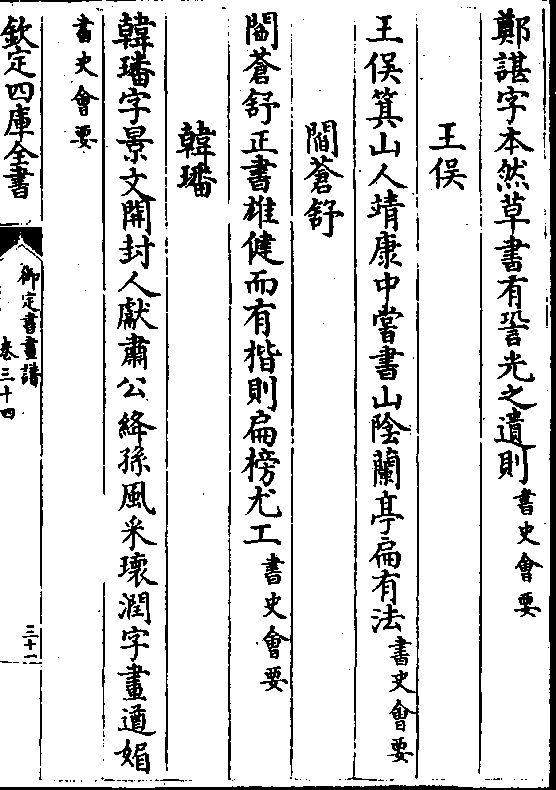 鄭諶字本然草書有䛒光之遺則書史會要
王俁
王俁箕山人靖康中嘗書山陰蘭亭扁有法書史會要
閻蒼舒
閻蒼舒正書雄健而有楷則扁榜尤工書史會要
韓璠
韓璠字景文開封人獻肅公絳孫風采瓌潤字畫遒媚
書史會要
欽定四庫全書
御定書畫譜
卷三十四
三十一